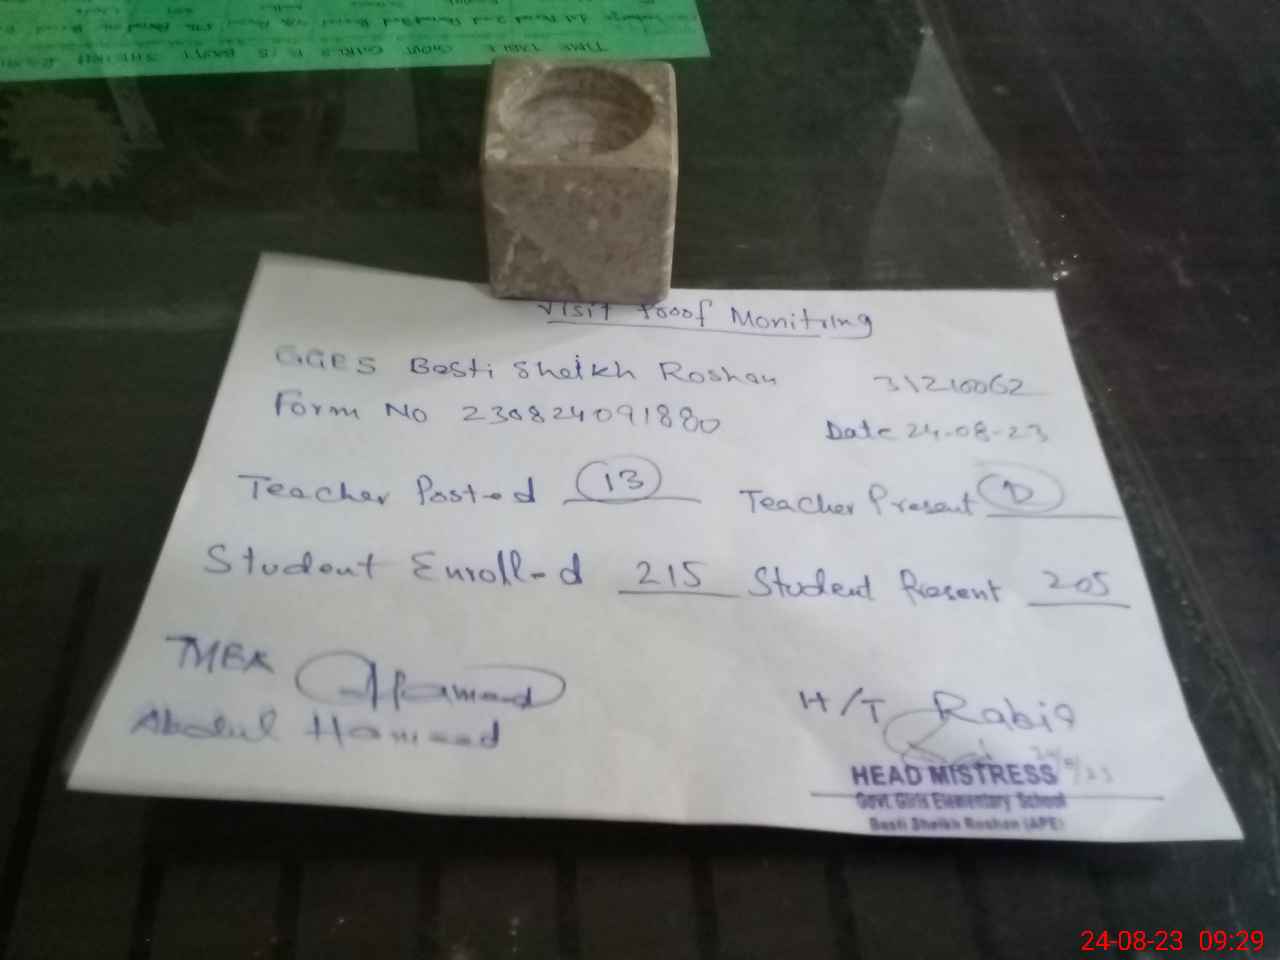 TIME TABLE GOVT GIRLS E/S BASTI SHEIKH
Visit Proof Monitring
GGES Basti Sheikh Roshan 31210062
Form No 230824091880 Date 24-08-23
Teacher Posted 13 Teacher Present
Student Enrolled 215 Student Present 205
TMEA Hameed
Abdul Hameed
H/T Rabia
24/8/23
HEAD MISTRESS
Govt. Girls Elementary School
Basti Sheikh Roshan (APE)
24-08-23 09:29